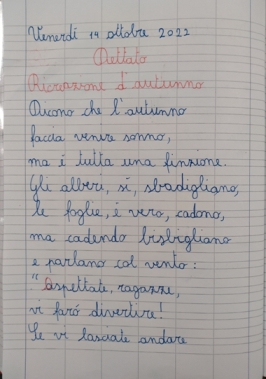 Venerdì 14 ottobre 2022
Dettato
Ricreazione d'autunno
Dicono che l'autunno
faccia venire sonno,
ma è tutta una finzione.
Gli alberi, sì, sbadigliano,
le foglie, è vero, cadono,
ma cadendo bisbigliano
e parlano col vento:
"aspettate, ragazze,
vi farò divertire!
Se vi lasciate andare